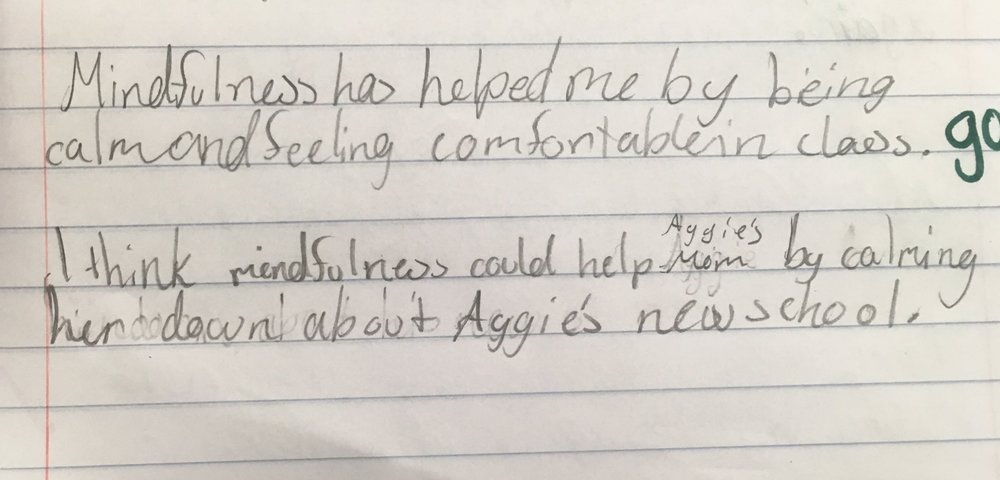 Mindfulness has helped me by being
calm and feeling comfortable in class. go
I think mindfulness could help Aggie's Mom by calming
her down about Aggie's new school.